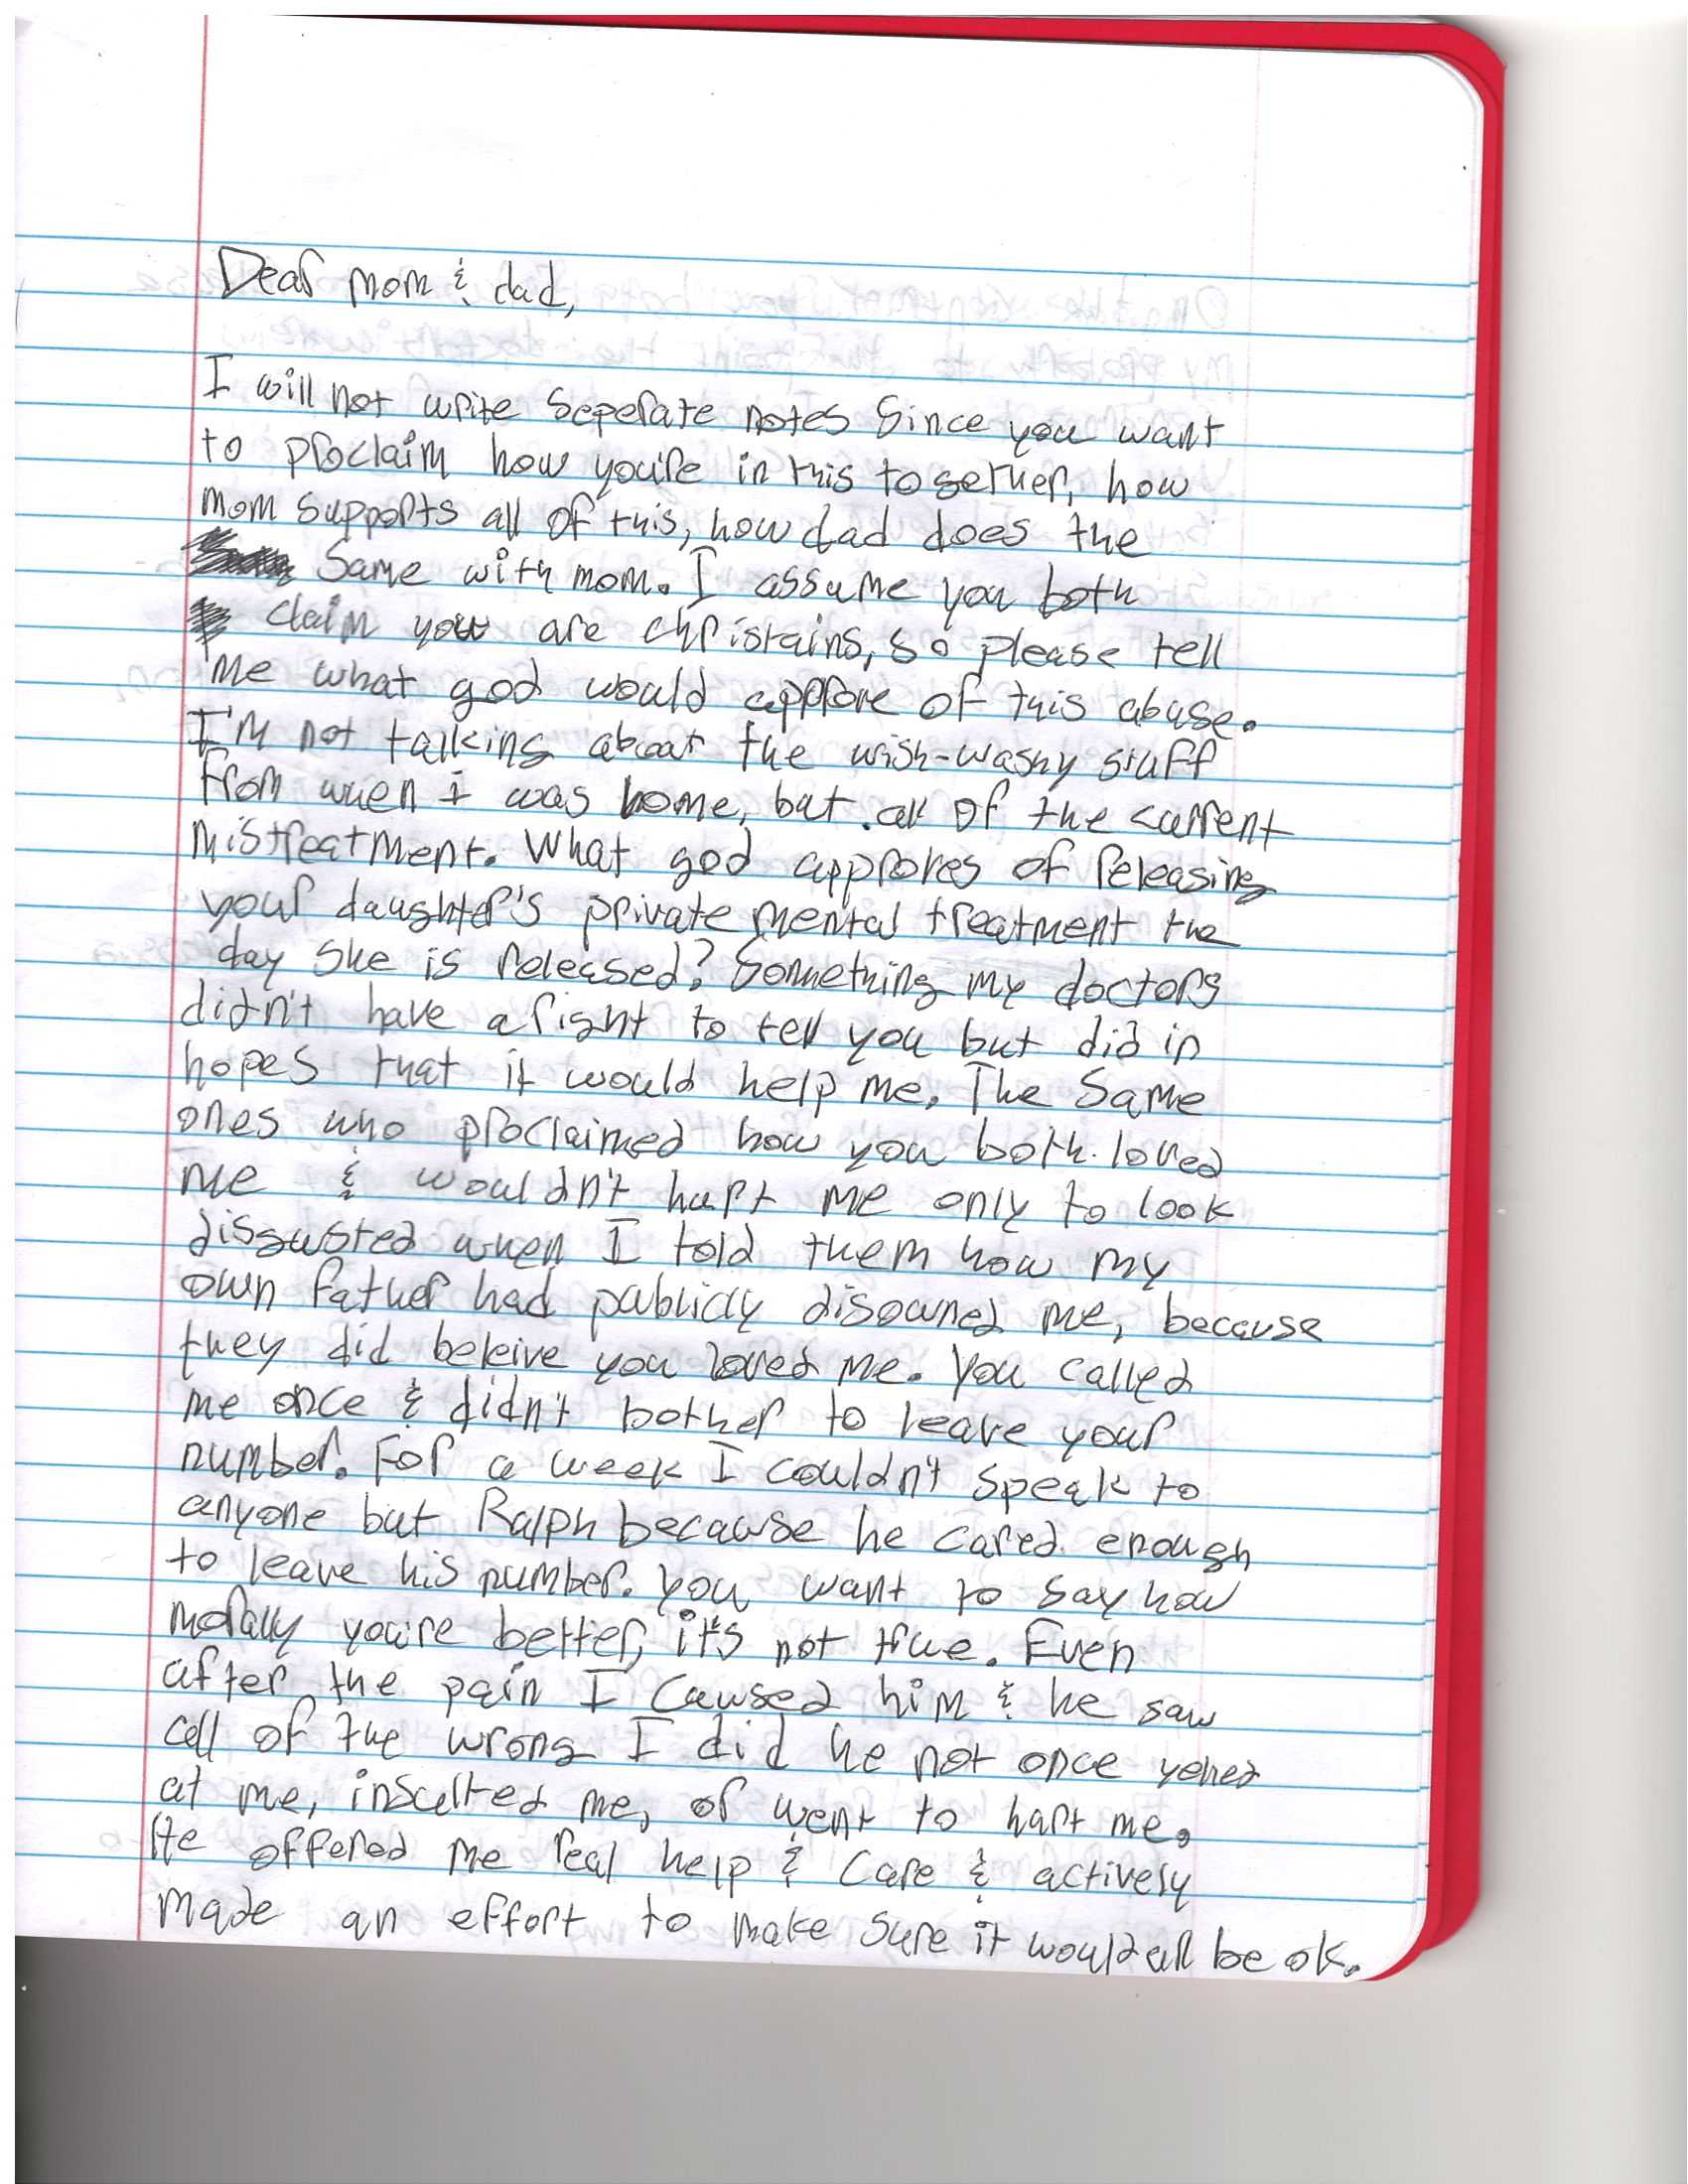 Dear mom & dad,
I will not write seperate notes since you want
to proclaim how you're in this together, how
mom supports all of this, how dad does the
same with mom. I assume you both
claim you are christains, so please tell
me what god would approve of this abuse.
I'm not talking about the wish-washy stuff
from when I was home, but all of the current
mistreatment. What god approves of releasing
your daughter's private mental treatment the
day she is released? Something my doctors
didn't have a right to tell you but did in
hopes that it would help me. The same
ones who proclaimed how you both loved
me & wouldn't hurt me only to look
disgusted when I told them how my
own father had publicly disowned me, because
they did beleive you loved me. You called
me once & didn't bother to leave your
number. For a week I couldn't speak to
anyone but Ralph because he cared enough
to leave his number. You want to say how
morally you're better, it's not true. Even
after the pain I caused him & he saw
all of the wrong I did he not once yelled
at me, insulted me, or went to hurt me.
He offered me real help & care & actively
made an effort to make sure it would all be ok.